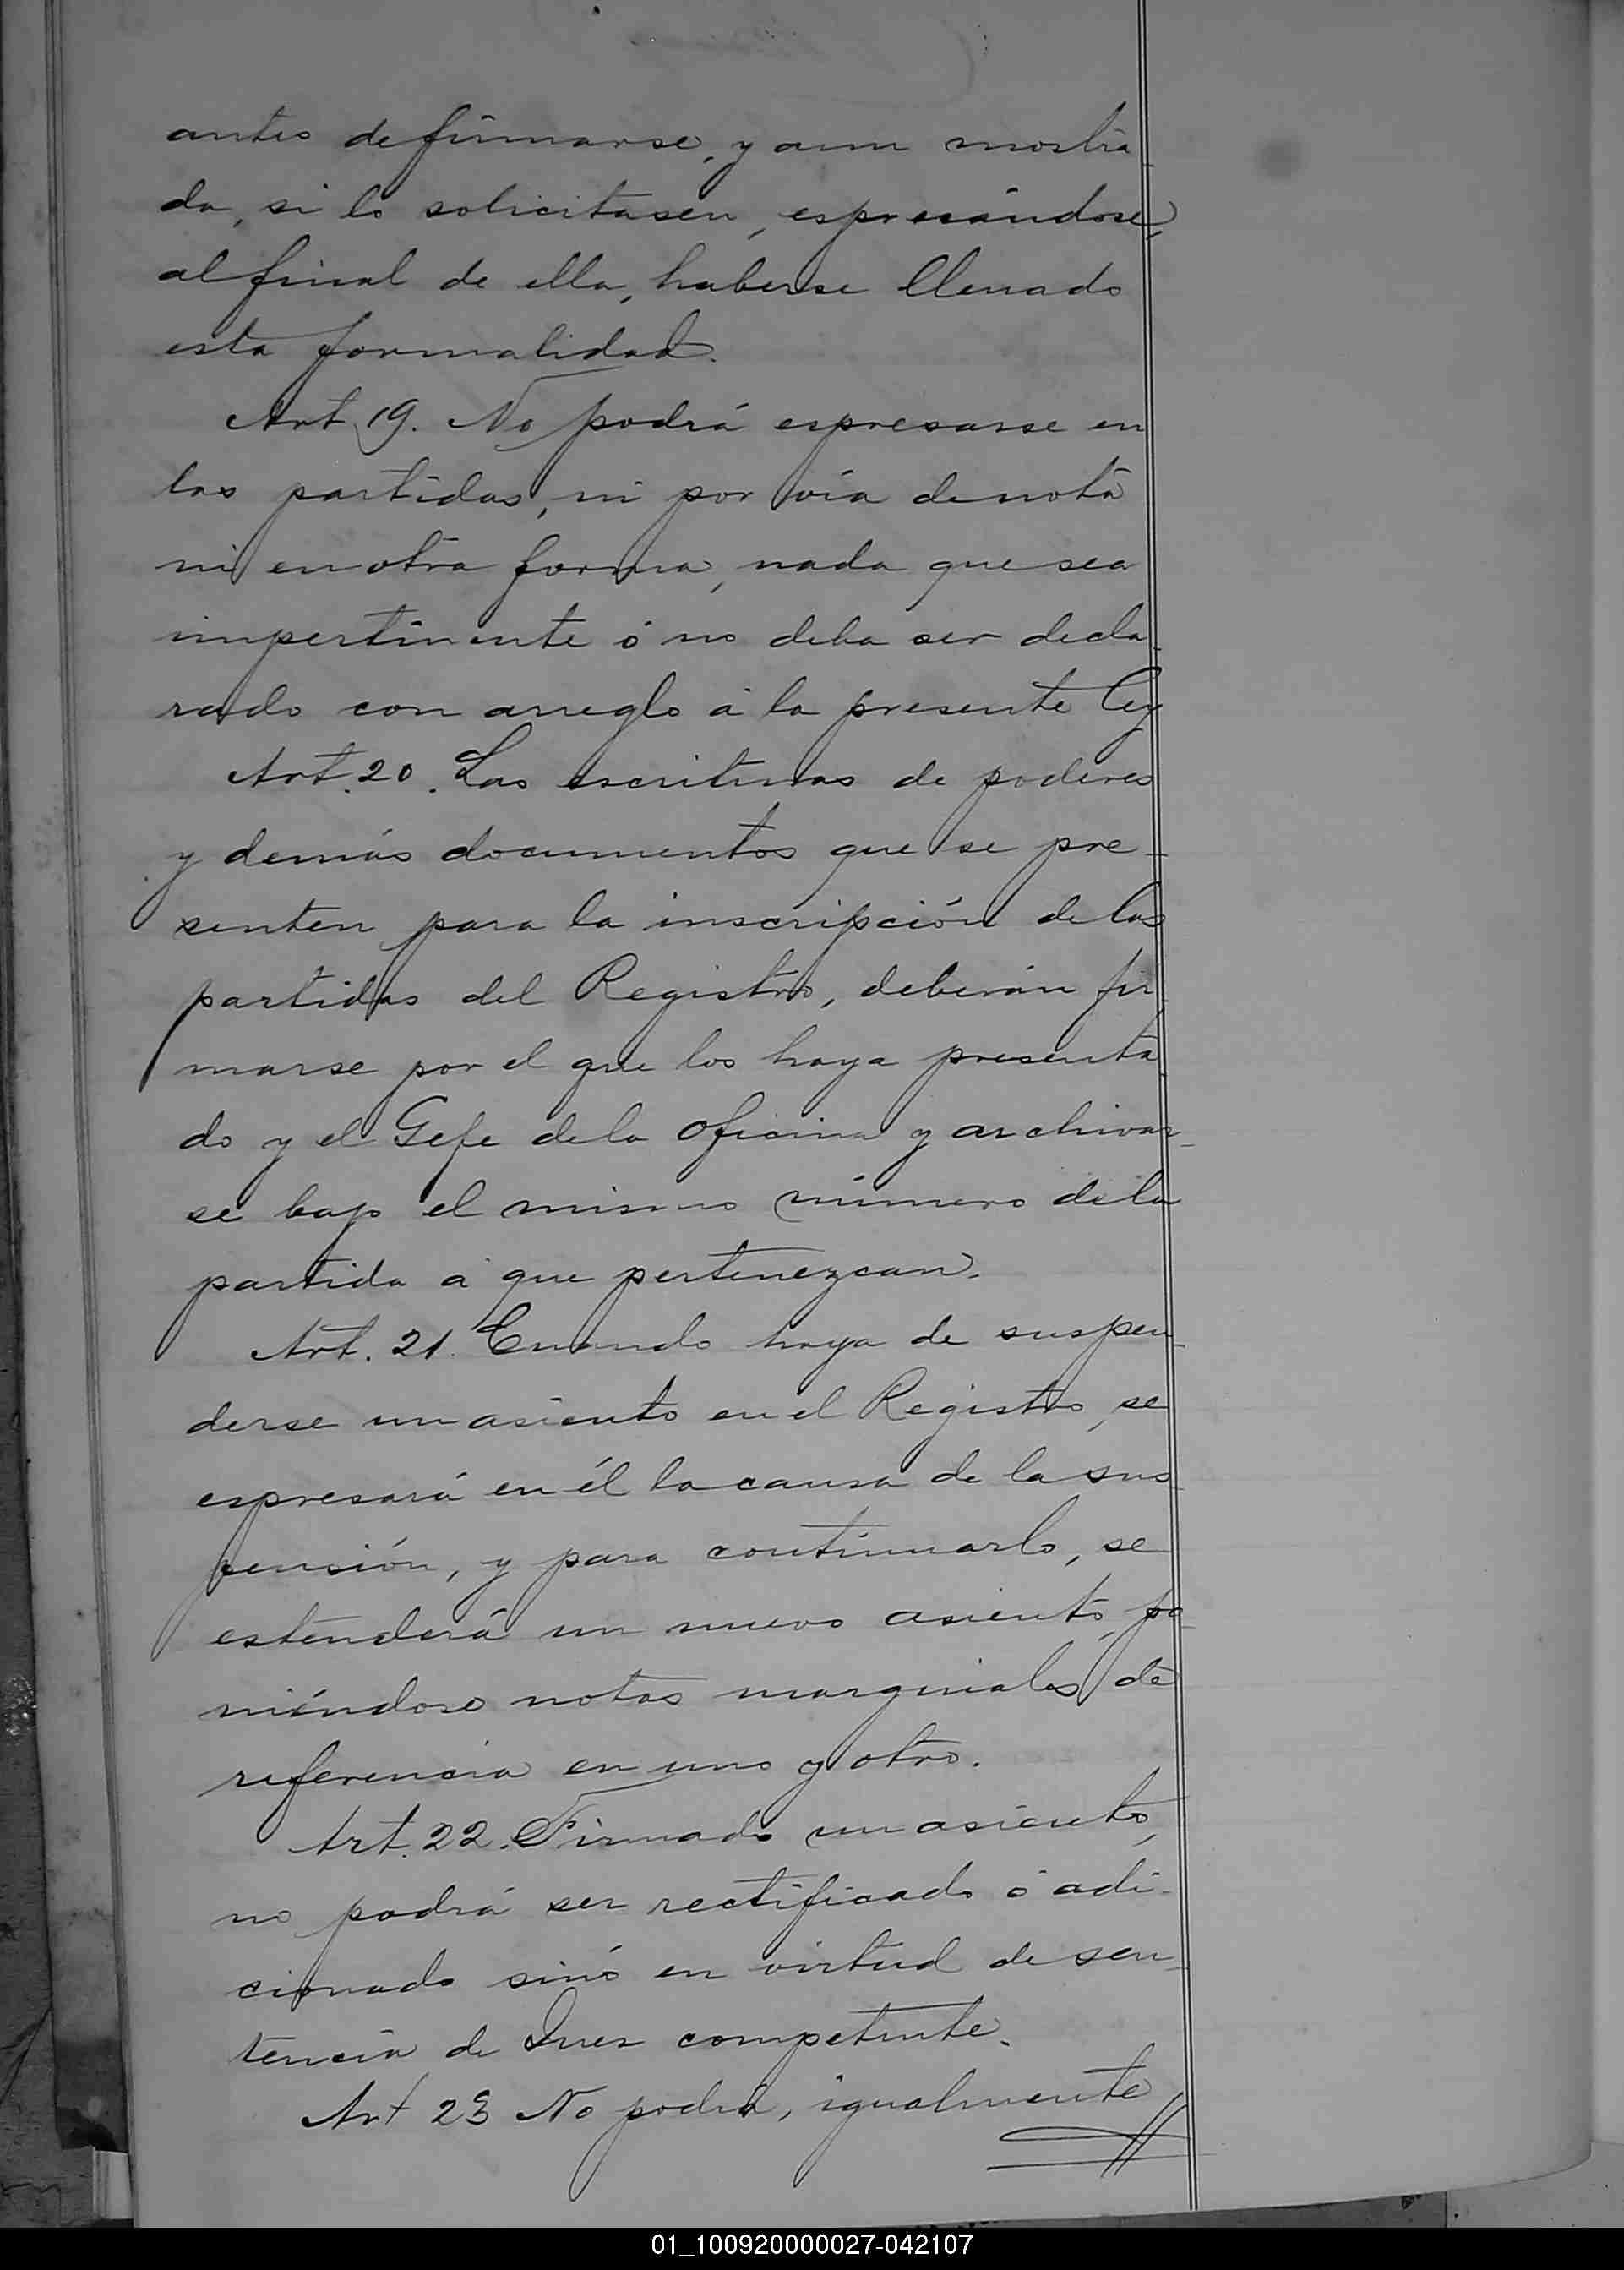 antes de firmarse, y aun mostra-
da, si lo solicitasen, espresándose,
al final de ella, haberse llenado
esta formalidad.
Art. 19. No podrá espresarse en
las partidas, ni por vía de nota
ni en otra forma, nada que sea
impertinente ó no deba ser decla-
rado con arreglo á la presente Ley
Art. 20. Las escrituras de poderes
y demás documentos que se pre-
senten para la inscripción de las
partidas del Registro, deberán fir-
marse por el que los haya presenta-
do y el Gefe de la oficina y archivar-
se bajo el mismo número de la
partida á que pertenezcan.
Art. 21. Cuando haya de suspen-
derse un asiento en el Registro, se
espresará en él la causa de la sus
pensión, y para continuarlo, se
estenderá un nuevo asiento, po-
niéndose notas marginales de
referencia en uno y otro.
Art. 22. Firmado un asiento,
no podrá ser rectificado ó adi-
cionado sinó en virtud de sen-
tencia de Juez competente.
Art 23 No podrá, igualmente
01_100920000027-042107